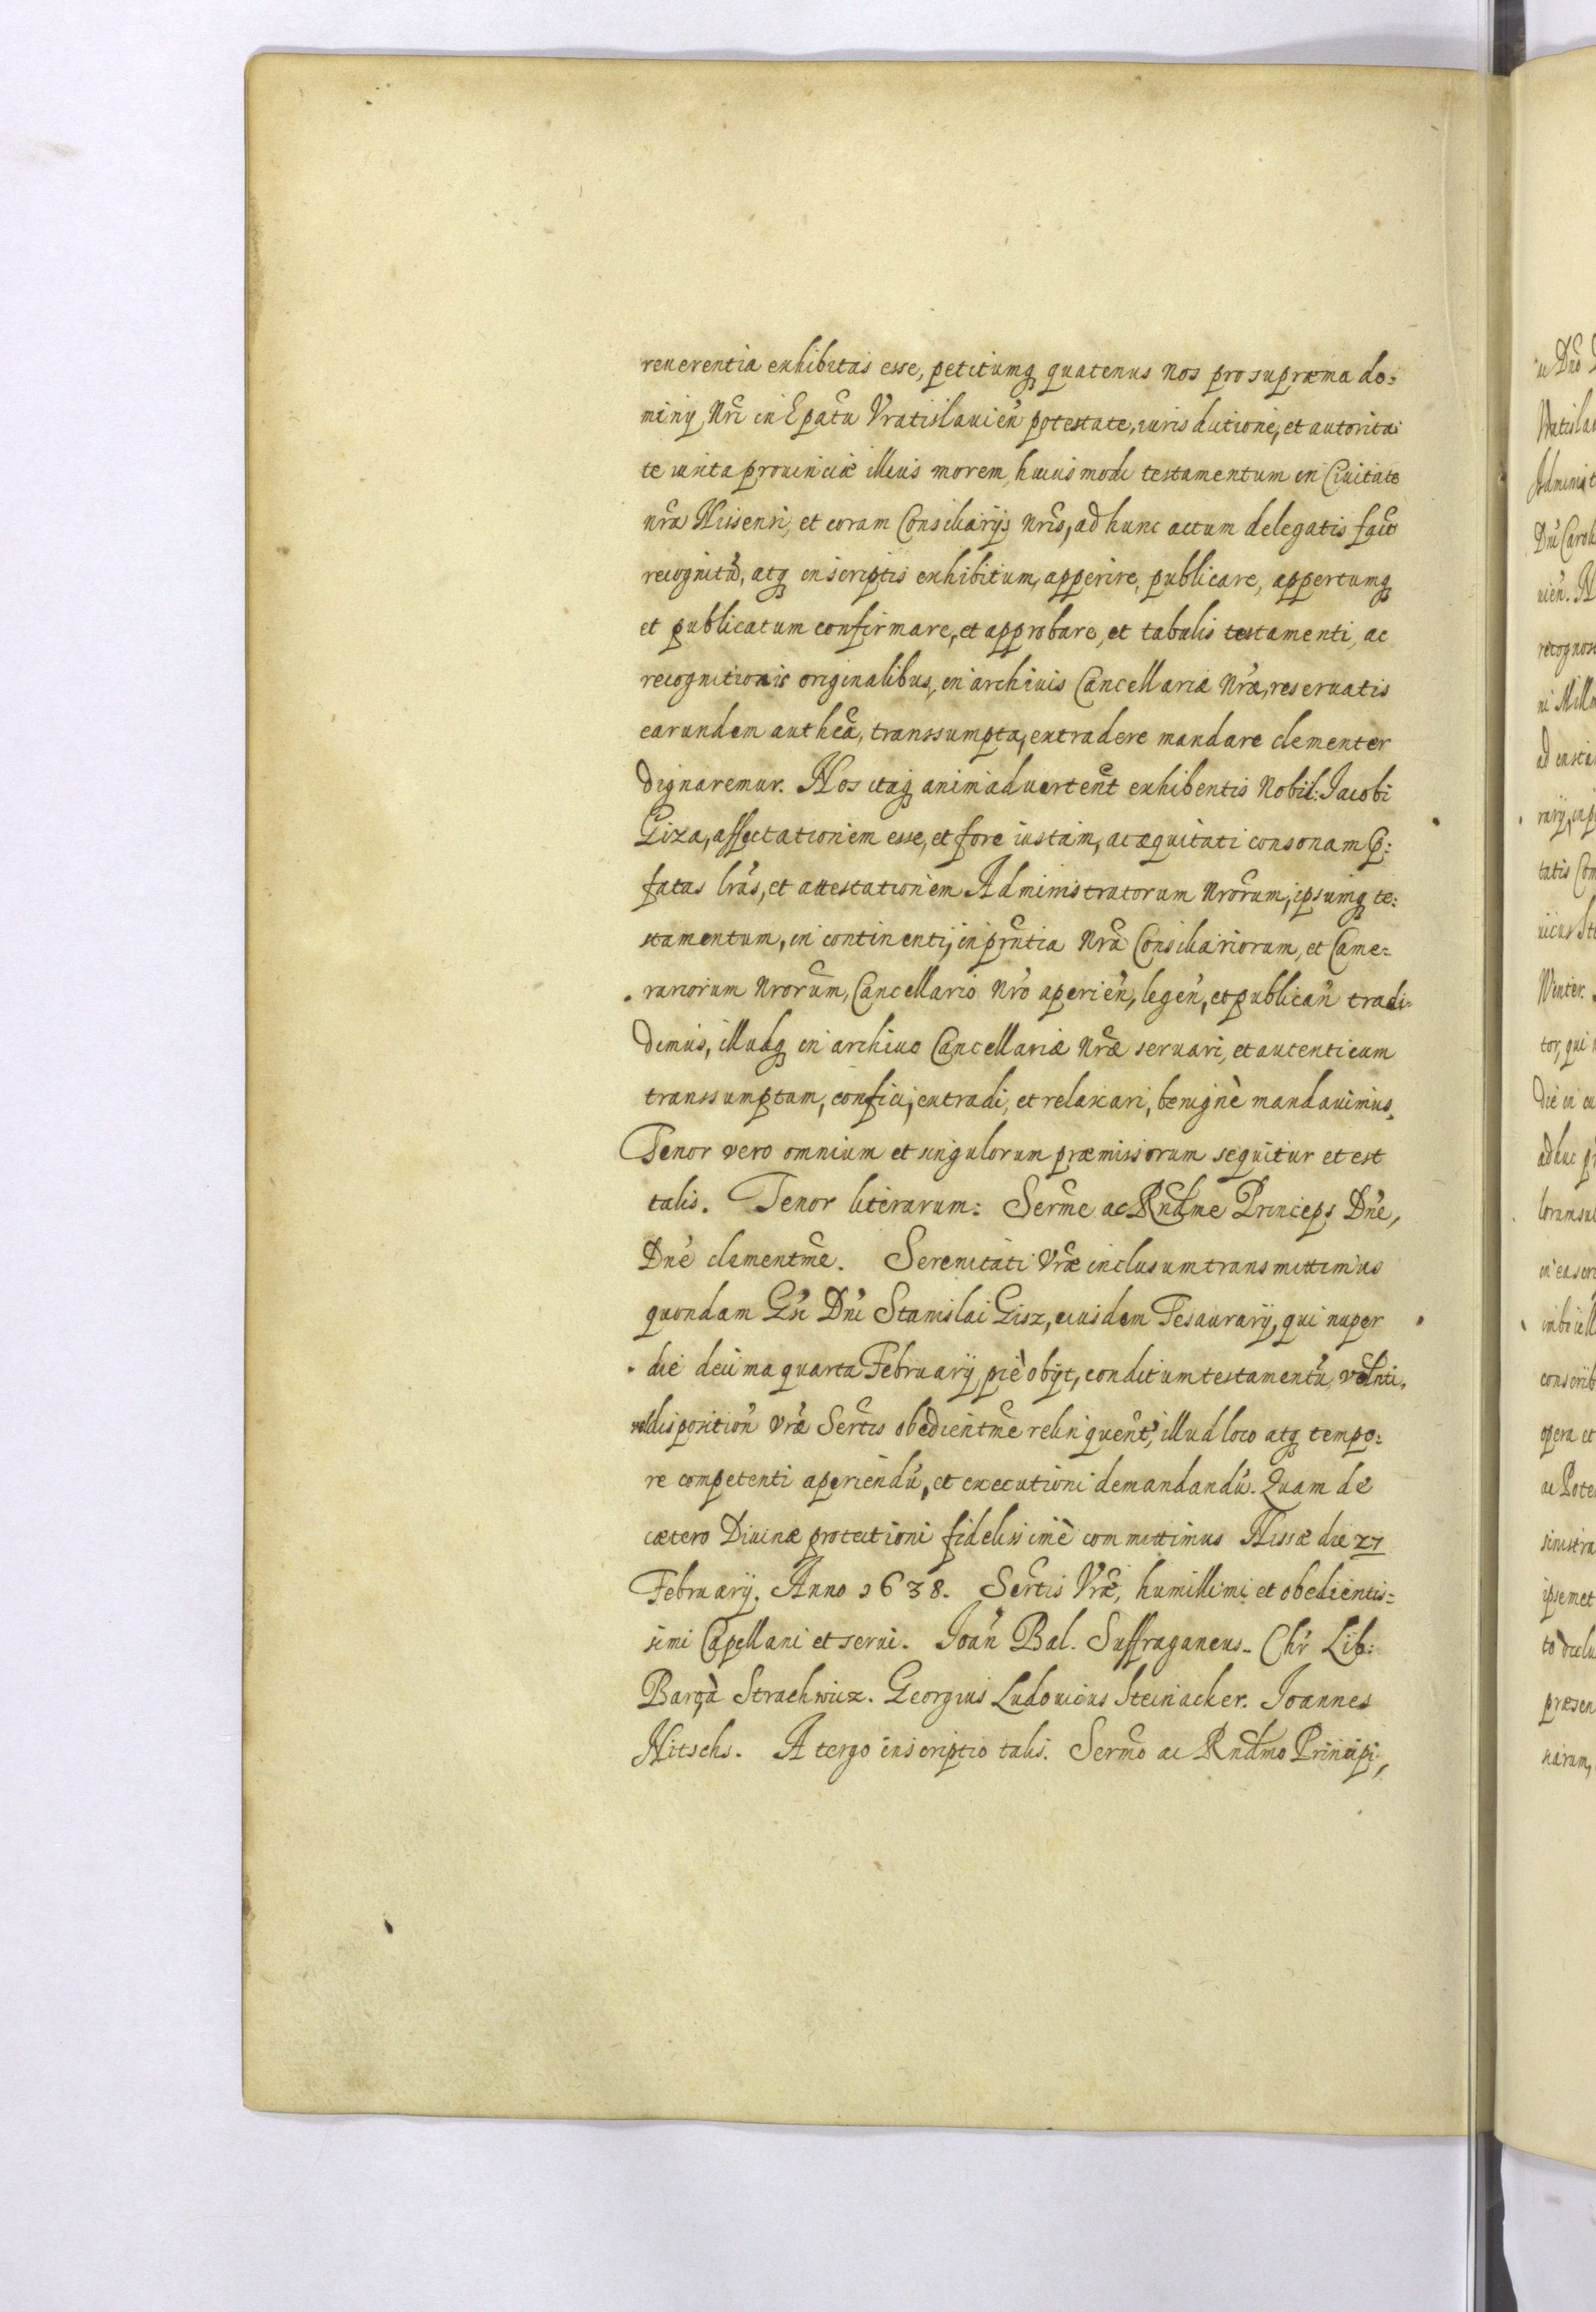 reuerentia exhibitas esse, petitumq quatenus nos pro supræma do:
minij Nri in Epatu Vratislauień potestate, iuris dictione, et autorita:
te iuxta prouinciæ illius morem, huius modi testamentum in Ciuitate
nra Nissensi, et coram Consiliarijs nris, ad hunc actum delegatis facto
recognitũ, atq in scriptis exhibitum, apperire, publicare, appertumq
et publicatum confirmare, et approbare, et tabulis testamenti, ac
recognitionis originalibus, in archiuis Cancellariæ Nræ, reseruatis
earundem authca, transsumpta, extradere mandare clementer
dignaremur. Nos itaq animaduertent exhibentis Nobil: Jacobi
Giza, affectationem esse, et fore iustam, ac æquitati consonam p:
fatas lras, et attestationem Administratorum Nrorum, ipsumq te:
stamentum, in continenti, in prntia Nra Consiliariorum, et Came:
rariorum Nrorum, Cancellario Nro aperień, legeń, et publicań tradi:
dimus, illudq in archiuo Cancellariæ Nræ seruari, et autenticum
transsumptum, confici, extradi, et relaxari, benignè mandauimus.
Tenor vero omnium et singulorum præmissorum sequitur et est
talis. Tenor literarum: Serme ac Rndme Princeps Dne,
Dne clementme. Serenitati Vræ inclusum transmittimus
quondam Gsi Dni Stanislai Gisz, eiusdem Tesaurarij, qui nuper
die decima quarta February piè obijt, conditum testamentũ, volnti,
disposition vræ Sertis obedientme relinquent, illud loco atq tempo:
re competenti aperiendũ, et executioni demandandũ. Quam de
cætero Diuinæ protectioni fidelissimè committimus Nissæ die 27
February. Anno 1638. Sertis Vræ, humillimi et obedientis:
simi Capellani et serui. Joań Bal. Suffraganeus. Chr Lib:
Baro à Strachwicz. Georgius Ludouicus Steinacker. Joannes
Nitschs. A tergo inscriptio talis. Sermo ac Rndmo Principi,